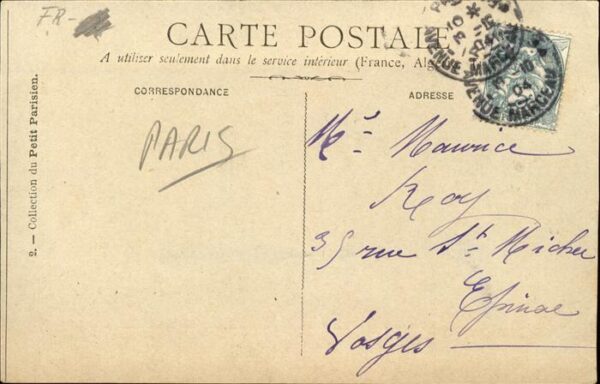 FR-
CARTE POSTALE
A utiliser seulement dans le service intérieur (France, Alg
CORRESPONDANCE
ADRESSE
PARIS
2. — Collection du Petit Parisien.
AVENUE MARCEAU
10
04
Mr Maurice
Roy
35 rue St Michel
Epinal
Vosges